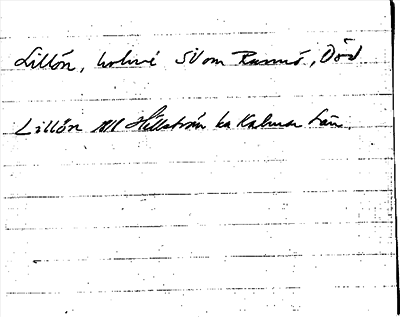 Lillön, holme SV om Ramnö, Död
Lillön MH Hellström ka Kalmar län.